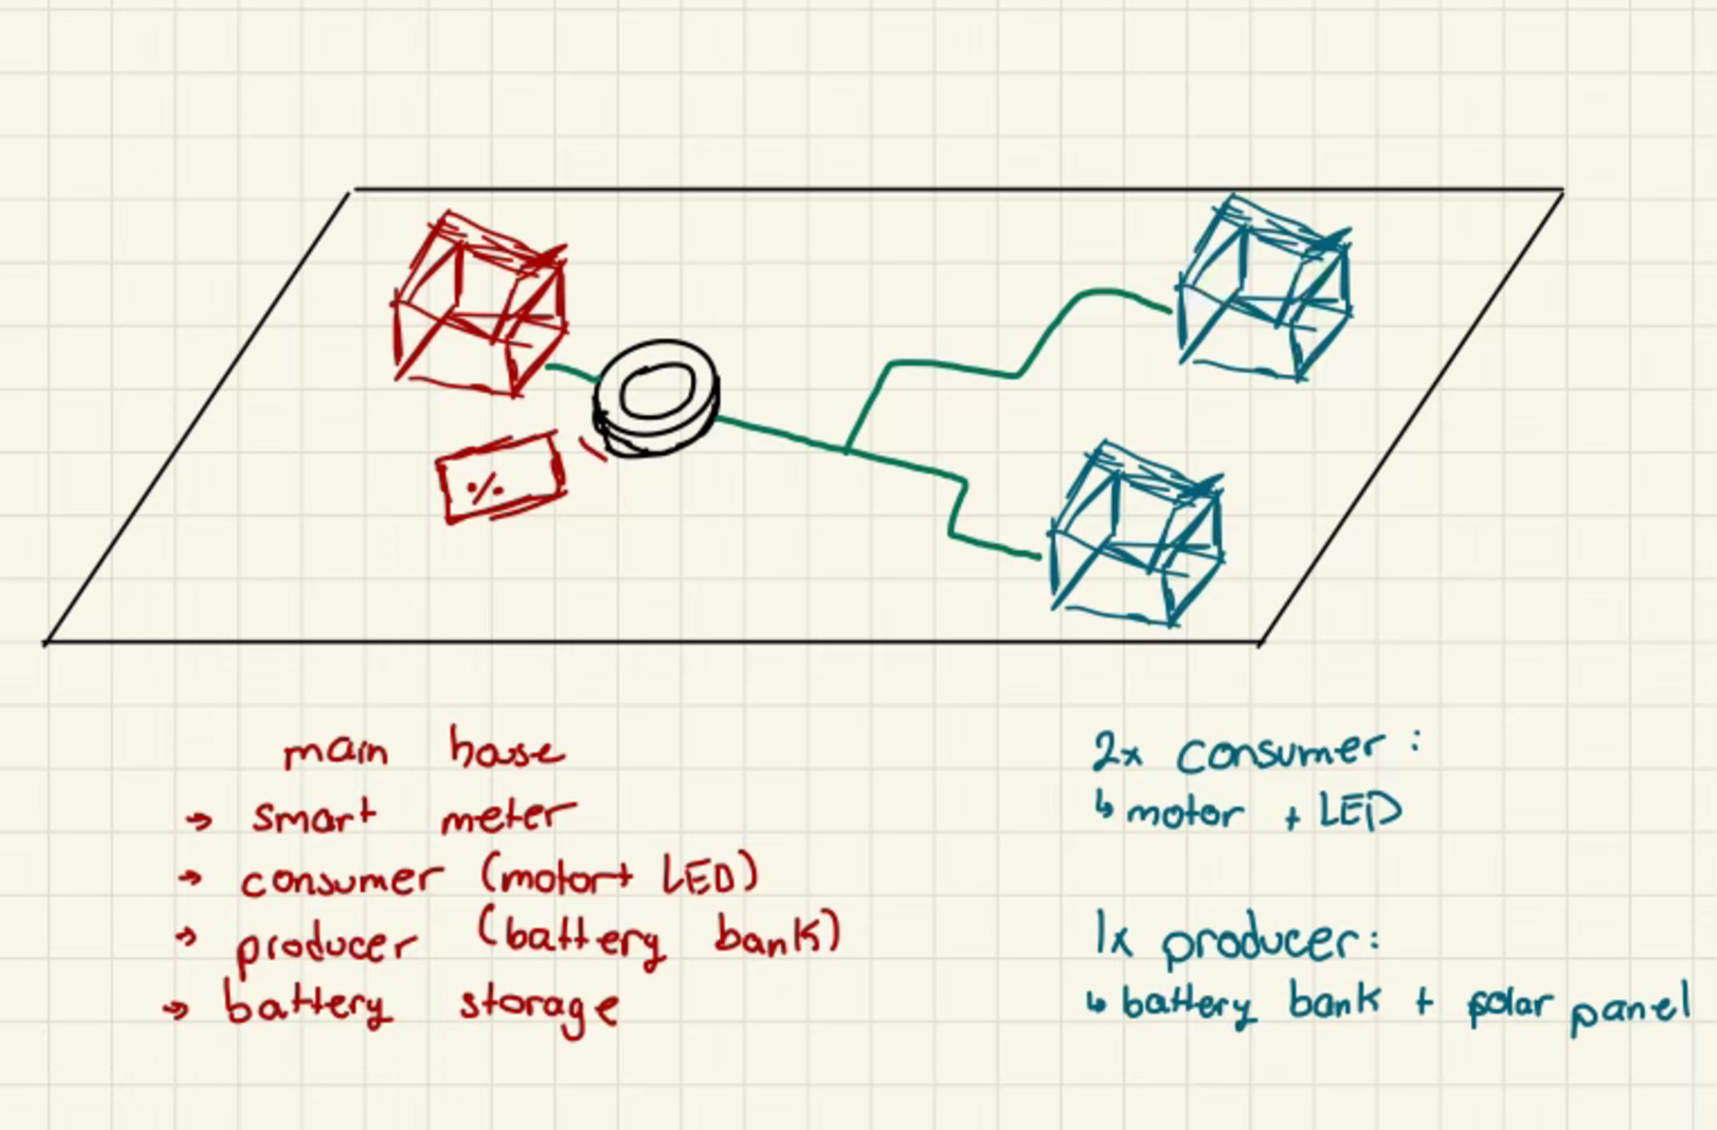 %
main house
→ smart meter
→ consumer (motor+ LED)
→ producer (battery bank)
→ battery storage
2x consumer:
↳ motor + LED
1x producer:
↳ battery bank + solar panel